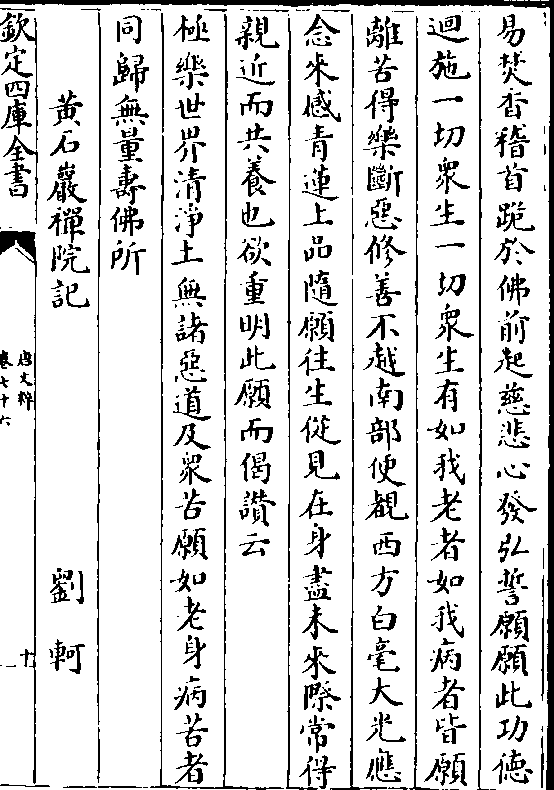 易焚香稽首跪於佛前起慈悲心發弘誓願願此功徳
迴施一切衆生一切衆生有如我老者如我病者皆願
離苦得樂斷惡修善不越南部便覩西方白毫大光應
念來感青蓮上品隨願往生從見在身盡未來際常得
親近而共養也欲重明此願而偈讚云
極樂世界清淨土無諸惡道及衆苦願如老身病苦者
同歸無量壽佛所
黄石巖禪院記 劉軻
欽定四庫全書 唐文粹 卷七十六 十